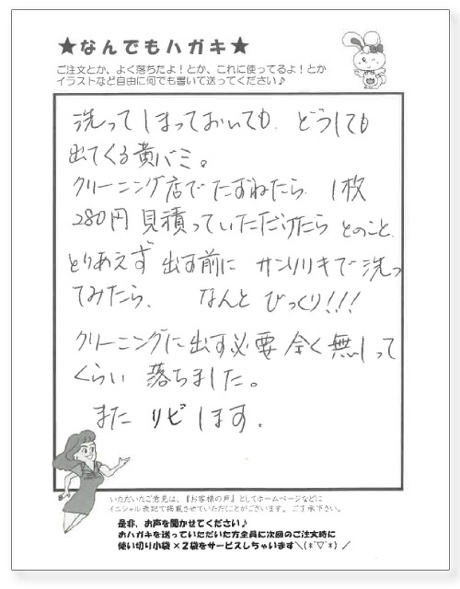 ★なんでもハガキ★
ご注文とか、よく落ちたよ！とか、これに使ってるよ！とか
イラストなど自由に何でも書いて送ってください♪
洗ってしまっておいても、どうしても
出てくる黄バミ。
クリーニング店でたずねたら、1枚
280円見積っていただけたらとのこと、
とりあえず出す前にサンリリキで洗っ
てみたら、なんとびっくり!!!
クリーニングに出す必要全く無しって
くらい落ちました。
またリピします。
いただいたご意見は、『お客様の声』としてホームページなどに
イニシャル表記で掲載させていただことがございます。ご了承下さい。
是非、お声を聞かせてください♪
おハガキを送っていただいた方全員に次回のご注文時に
使い切り小袋×2袋をサービスしちゃいます＼(*ˊ▽ˋ*)／